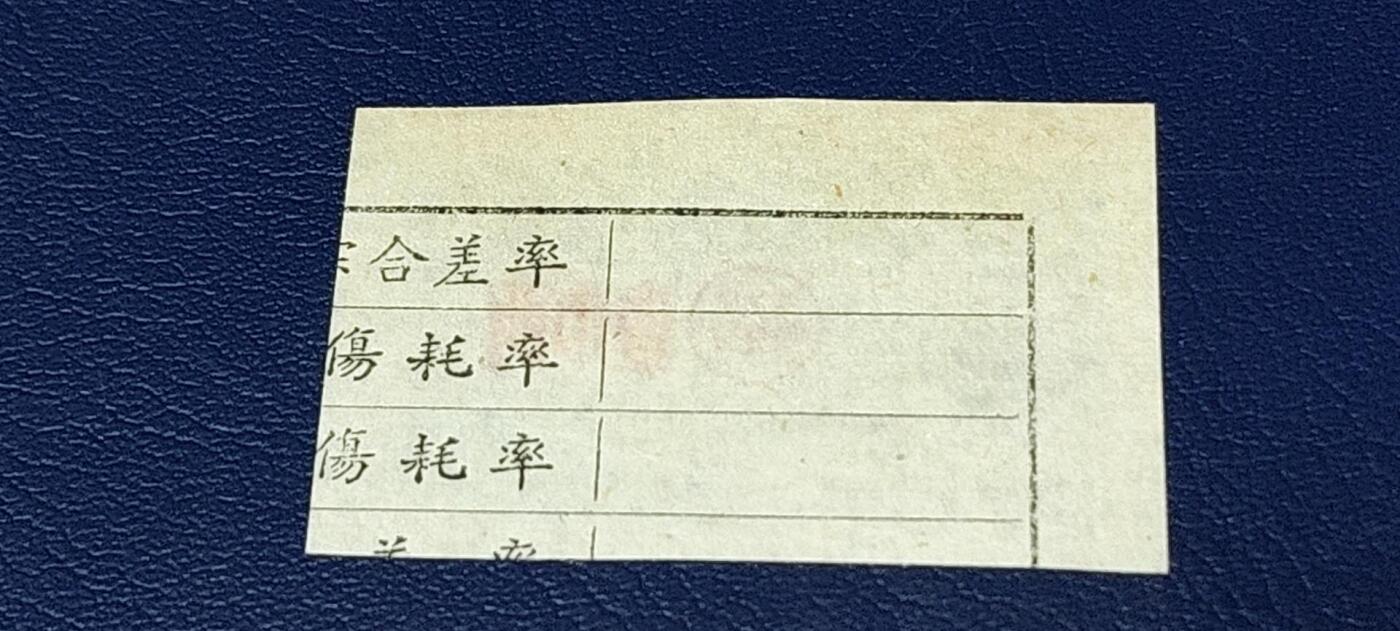 合差率
傷耗率
傷耗率
差率